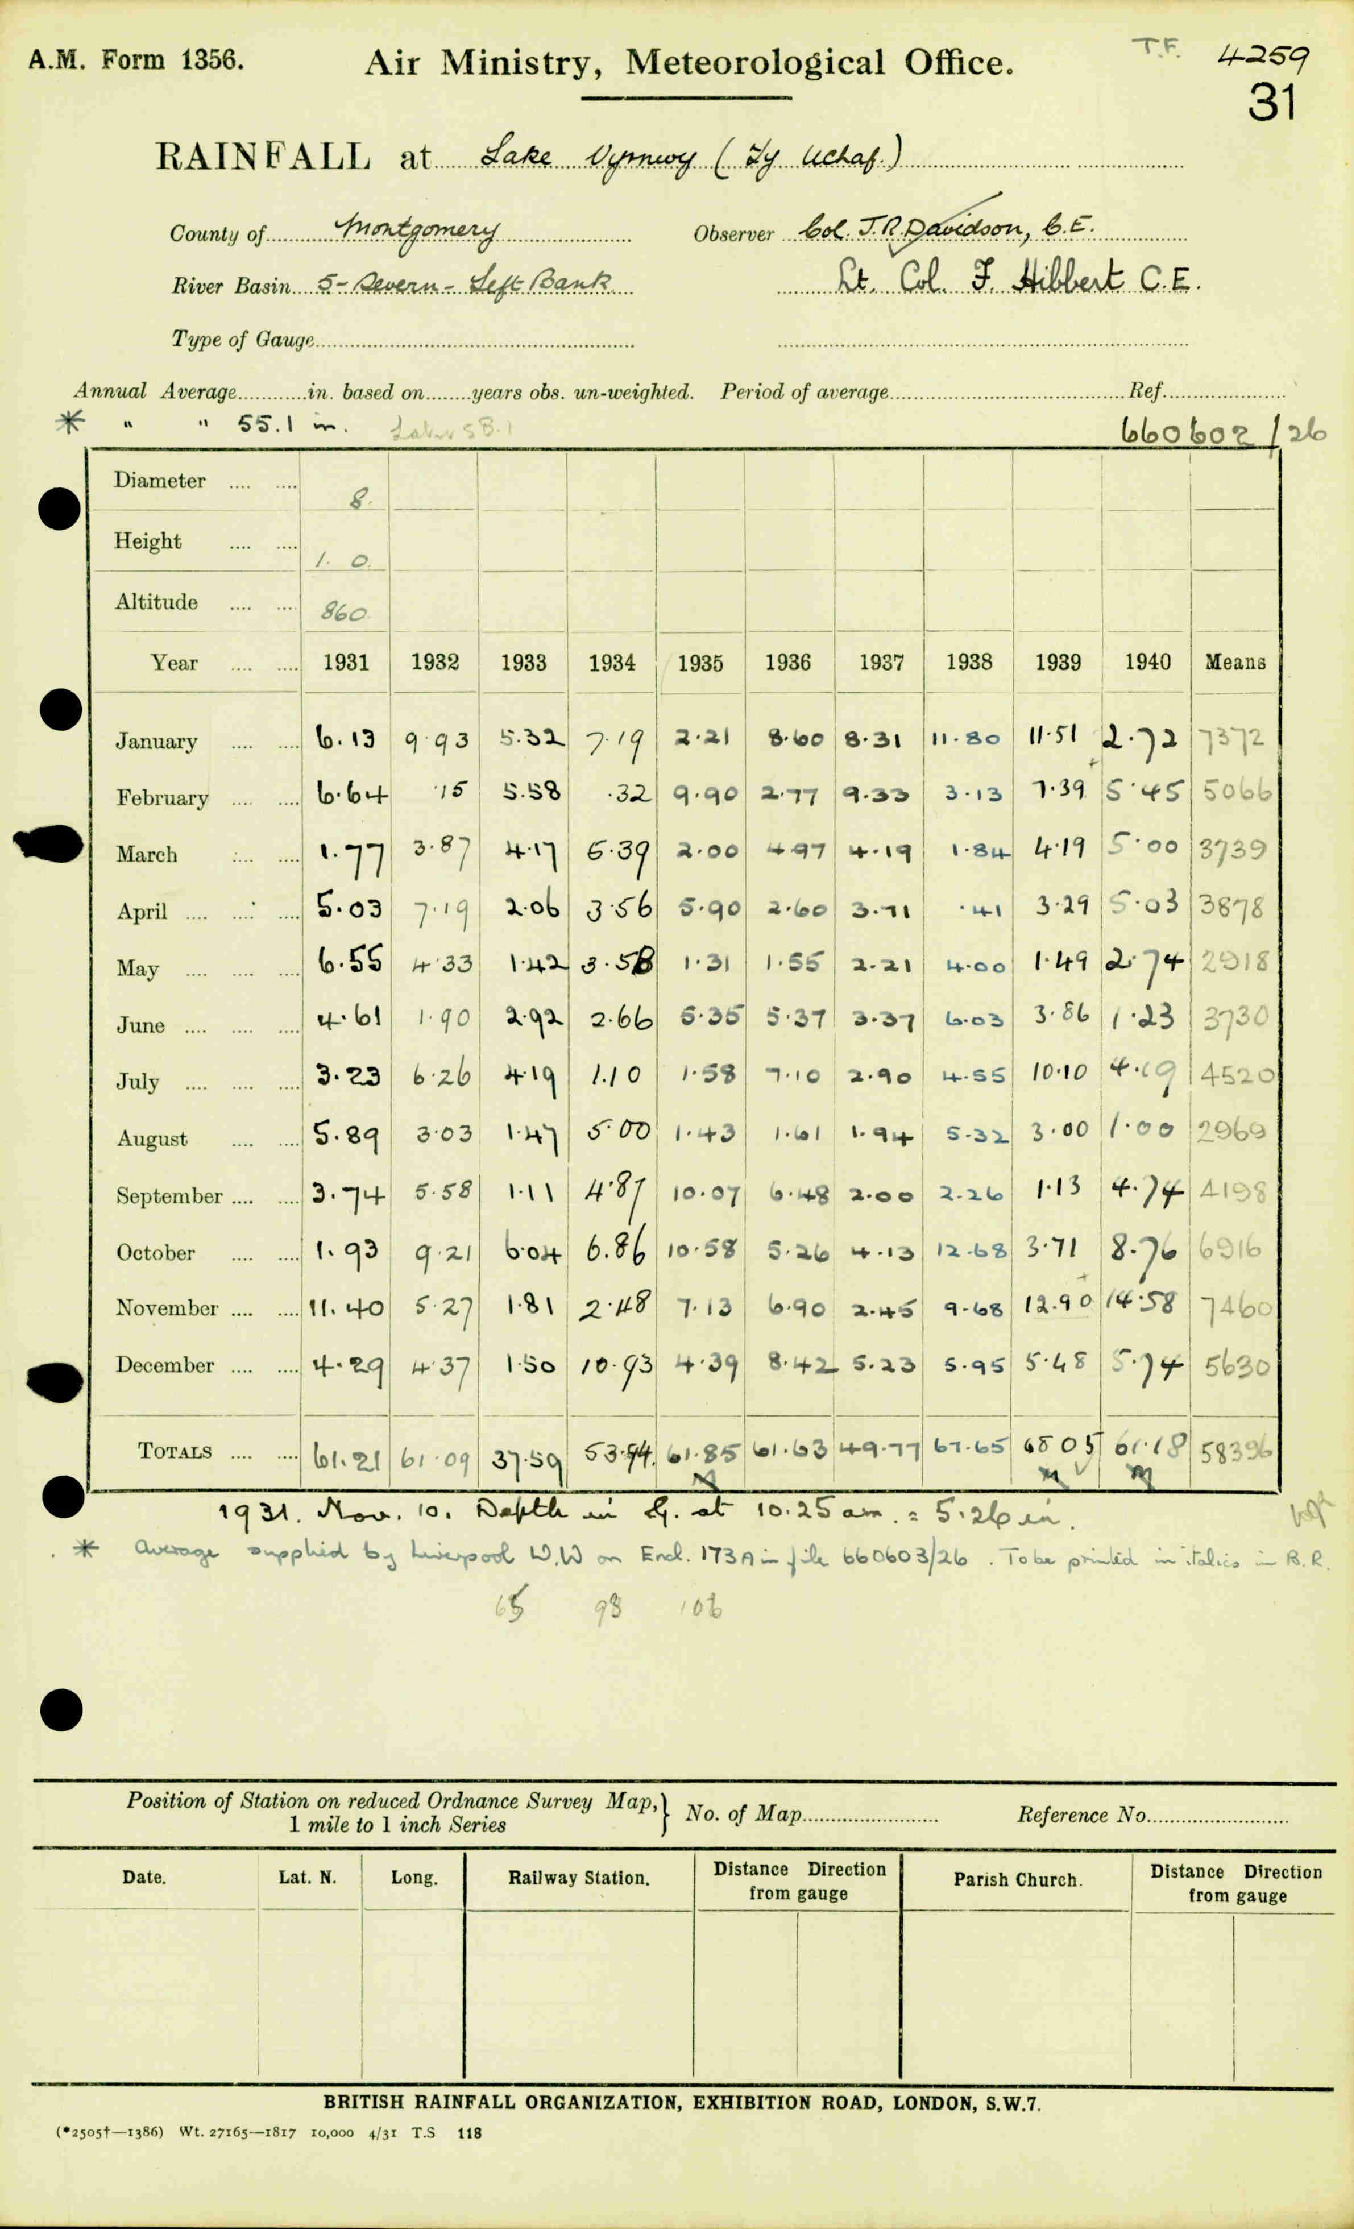 A.M. Form 1356. Air Ministry, Meteorological Office. T.F. 4259
31
RAINFALL at Lake Vyrnwy (Ty Uchaf.)
County of Montgomery Observer Col. J.R. Davidson, C.E.
River Basin 5 - Severn - Left Bank Lt. Col. F. Hibbert C.E.
Type of Gauge
Annual Average in. based on years obs. un-weighted. Period of average Ref.
* " " 55.1 in. 660602/26
Diameter 8.
Height 1. 0.
Altitude 860
Year 1931 1932 1933 1934 1935 1936 1937 1938 1939 1940 Means
January 6.13 9.93 5.32 7.19 2.21 8.60 8.31 11.80 11.51 2.72 7372
February 6.64 .15 5.58 .32 9.90 2.77 9.33 3.13 7.39 5.45 5066
March 1.77 3.87 4.17 5.39 2.00 4.97 4.19 1.84 4.19 5.00 3739
April 5.03 7.19 2.06 3.56 5.90 2.60 3.71 .41 3.29 5.03 3878
May 6.55 4.33 1.42 3.58 1.31 1.55 2.21 4.00 1.49 2.74 2918
June 4.61 1.90 2.92 2.66 5.35 5.37 3.37 6.03 3.86 1.23 3730
July 3.23 6.26 4.19 1.10 1.58 7.10 2.90 4.55 10.10 4.19 4520
August 5.89 3.03 1.47 5.00 1.43 1.61 1.94 5.32 3.00 1.00 2969
September 3.74 5.58 1.11 4.87 10.07 6.48 2.00 2.26 1.13 4.74 4198
October 1.93 9.21 6.04 6.86 10.58 5.26 4.13 12.68 3.71 8.76 6916
November 11.40 5.27 1.81 2.48 7.13 6.90 2.45 9.68 12.90 14.58 7460
December 4.29 4.37 1.50 10.93 4.39 8.42 5.23 5.95 5.48 5.74 5630
TOTALS 61.21 61.09 37.59 53.94 61.85 61.63 49.77 67.65 68.05 61.18 58396
1931. Nov. 10. Depth in g. at 10.25 am. = 5.26 in.
* Average supplied by Liverpool W.W on Encl. 173A in file 660603/26. To be printed in italics in B.R.
65 98 106
Position of Station on reduced Ordnance Survey Map, } No. of Map Reference No.
1 mile to 1 inch Series
Date. Lat. N. Long. Railway Station. Distance Direction Parish Church. Distance Direction
from gauge from gauge
BRITISH RAINFALL ORGANIZATION, EXHIBITION ROAD, LONDON, S.W.7.
(*2505†—1386) Wt. 27165—1817 10,000 4/31 T.S 118